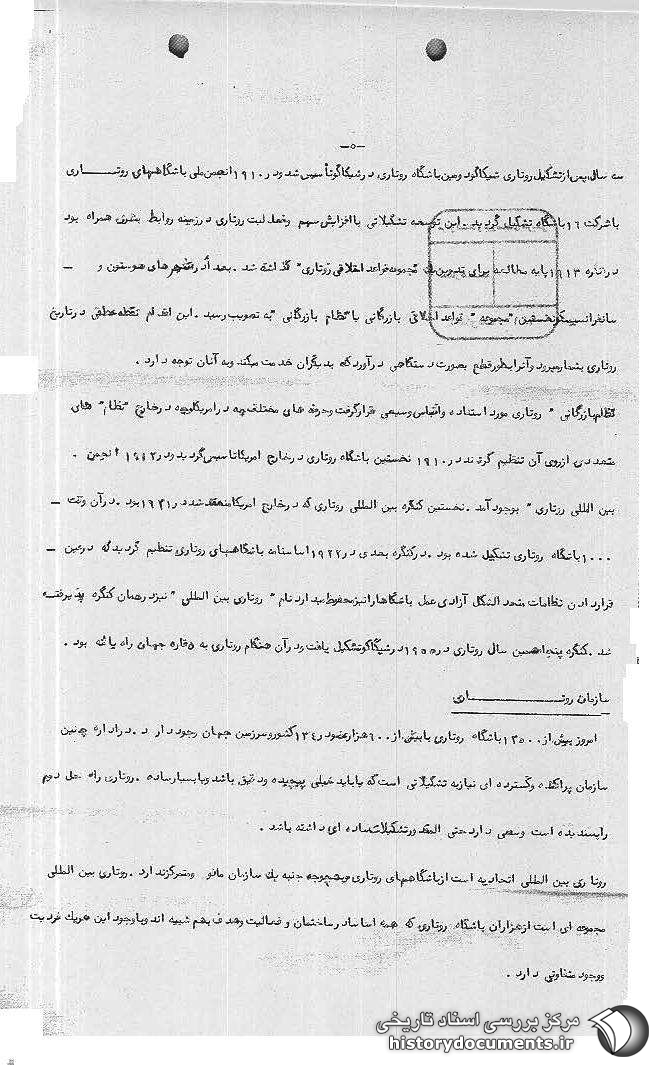 -۵-
سه سال پس از تشکیل روتاری شیکاگو دومین باشگاه روتاری در شیکاگو تأسیس شد و در ۱۹۱۰ انجمن ملی باشگاههای روتـــاری
با شرکت ۱۶ باشگاه تشکیل گردید. این توسعه تشکیلاتی با افزایش سهم وفعالیت روتاری در زمینه روابط بشری همراه بود
در ۱۹۱۳ پایه مطالعه برای تدوین یک "مجموعه قواعد اخلاقی روتاری" گذاشته شد. بعداً در شهرهای هوستون و -
سانفرانسیسکو نخستین "مجموعه" قواعد اخلاقی بازرگانی یا "نظام بازرگانی" به تصویب رسید. این اقدام نقطه عطفی در تاریخ
روتاری بشمار میرود وآنرا بطور قطع بصورت دستگاهی درآورد که بدیگران خدمت میکند وبه آنان توجه دارد.
نظام بازرگانی" روتاری مورد استفاده واقتباس وسیعی قرار گرفت وحرفه های مختلف چه در امریکا وچه در خارج "نظام" های
متعددی از روی آن تنظیم کردند در ۱۹۱۰ نخستین باشگاه روتاری در خارج امریکا تاسیس گردید ودر انجمن -
بین المللی روتاری" بوجود آمد. نخستین کنگره بین المللی روتاری که در خارج امریکا منعقد شد در ۱۹۲۱ بود. در آن وقت -
۱۰۰۰ باشگاه روتاری تشکیل شده بود. در کنگره بعدی در ۱۹۲۲ اساسنامه باشگاههای روتاری تنظیم گردید که در عین -
قرار دادن نظامات متحد الشکل آزادی عمل باشگاهها را نیز محفوظ میدارد نام "روتاری بین المللی" نیز در همان کنگره پذیرفتـه
شد. کنگره پنجاهمین سال روتاری در ۱۹۵۵ در شیکاگو تشکیل یافت ودر آن هنگام روتاری به قاره جهان راه یافته بود.
سازمان روتـــــــــاری
امروز بیش از ۱۳۵۰۰ باشگاه روتاری با بیش از ۶۰۰ هزار عضو در ۱۳۴ کشور وسرزمین جهان وجود دارد. در اداره چنین
سازمان پراکنده وگسترده ای نیاز به تشکیلاتی است که یا باید خیلی پیچیده ودقیق باشد ویا بسیار ساده. روتاری راه حل دوم
را پسندیده است وسعی دارد حتی المقدور تشکیلات ساده ای داشته باشد.
روتاری بین المللی اتحادیه است از باشگاههای روتاری وبهیچوجه جنبه یک سازمان مافوق ومتمرکز ندارد. روتاری بین المللی
مجموعه ای است از هزاران باشگاه روتاری که همه اساسا در ساختمان و فعالیت وهدف بهم شبیه اند وبا وجود این هریک فردیت
ووجود متفاوتی دارد.
مرکز بررسی اسناد تاریخی
historydocuments.ir